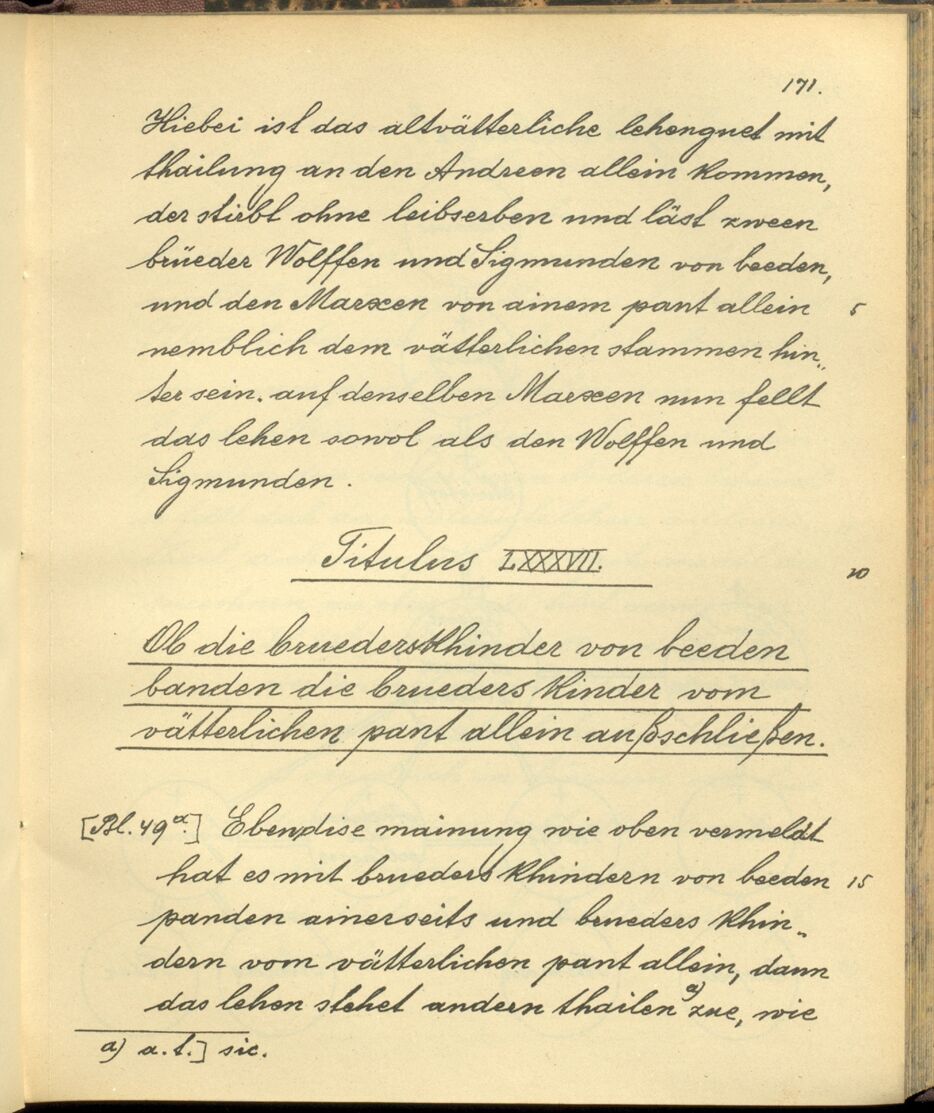 171.
Hiebei ist das altvätterliche lehenguet mit
thailung an den Andreen allein kommen,
der stirbt ohne leibserben und läst zween
brüeder Wolffen und Sigmunden von beeden,
und den Marxen von ainem pant allein
5
nemblich dem vätterlichen stammen hin„
ter sein. auf denselben Marxen nun fellt
das lehen sowol als den Wolffen und
Sigmunden.
Titulus LXXXVII.
10
Ob die bruederskhinder von beeden
banden die brueders kinder vom
vätterlichen pant allein außschließen.
[Bl. 49a.] Ebendise mainung wie oben vermeldt
hat es mit brueders khindern von beeden
15
panden ainerseits und brueders khin„
dern vom vätterlichen pant allein, dann
das lehen stehet andern thailen a) zue, wie
a) a. t.] sic.